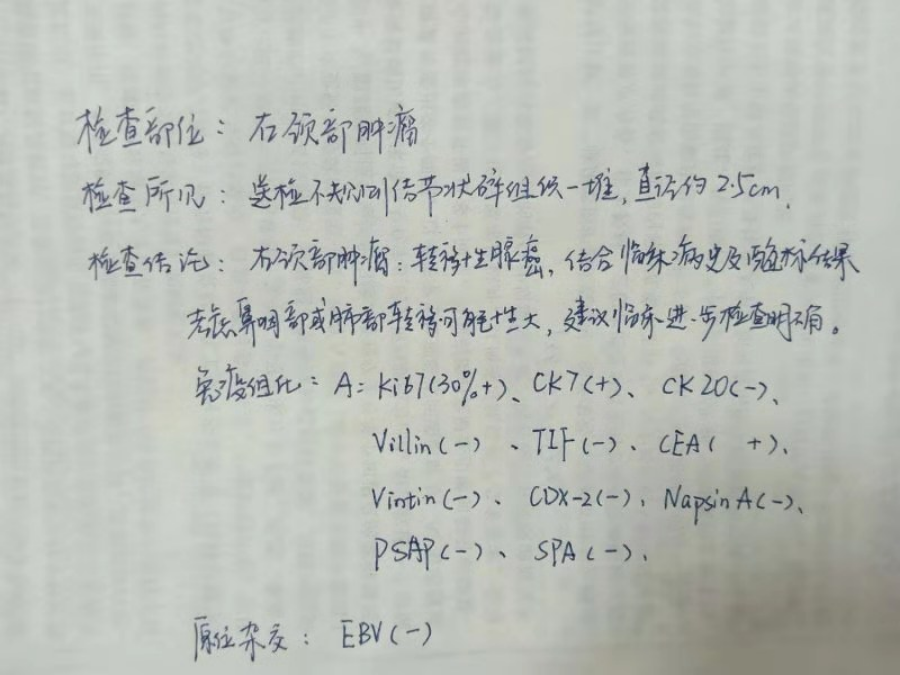 检查部位：右颈部肿瘤
检查所见：送检不规则结节状碎组织一堆，直径约2.5cm.
检查结论：右颈部肿瘤：转移性腺癌，结合临床病史及酶标结果
考虑鼻咽部或肺部转移可能性大，建议临床进一步检查明确。
免疫组化：A：Ki67(30%+)、CK7(+)、CK20(-)、
Villin(-)、TIF(-)、CEA( +)、
Vintin(-)、CDX-2(-)、Napsin A(-)、
PSAP(-)、SPA(-)、
原位杂交：EBV(-)